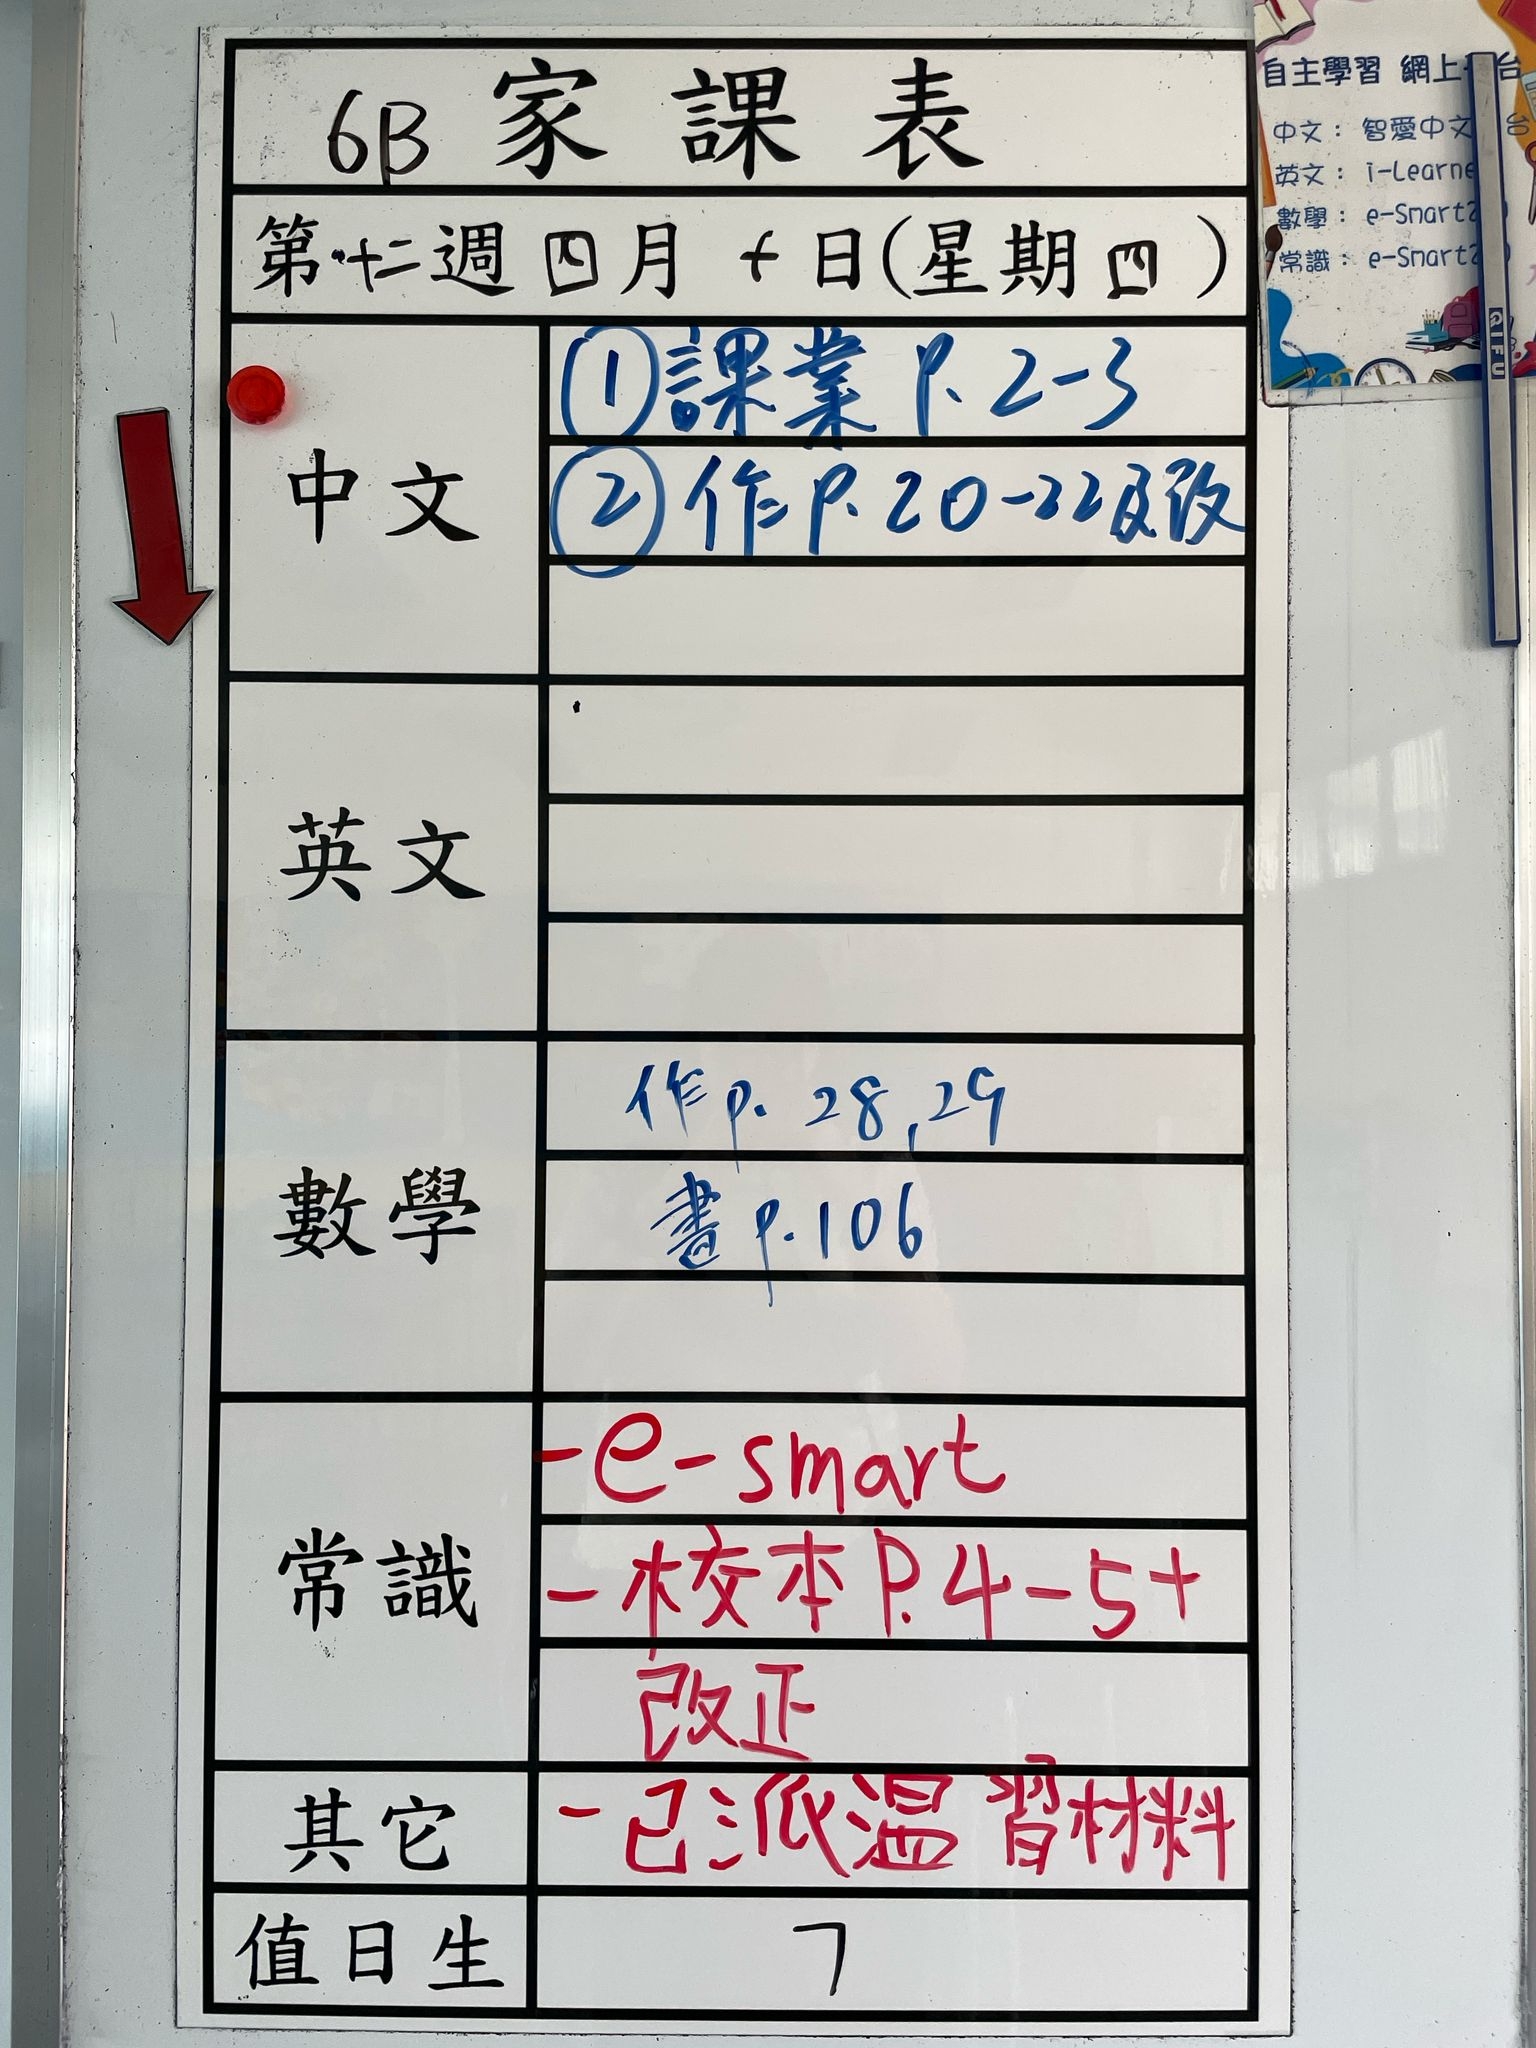 6B 家課表
第十二週 四月十日(星期四)
中文
①課業 P. 2-3
②作P. 20-22及改
英文
數學
作p. 28,29
書p.106
常識
-e-smart
-校本P.4-5+
改正
其它
-已派溫習材料
值日生
7
自主學習 網上台
中文: 智愛中文台
英文: i-Learne
數學: e-Smart
常識: e-Smart
QIFU